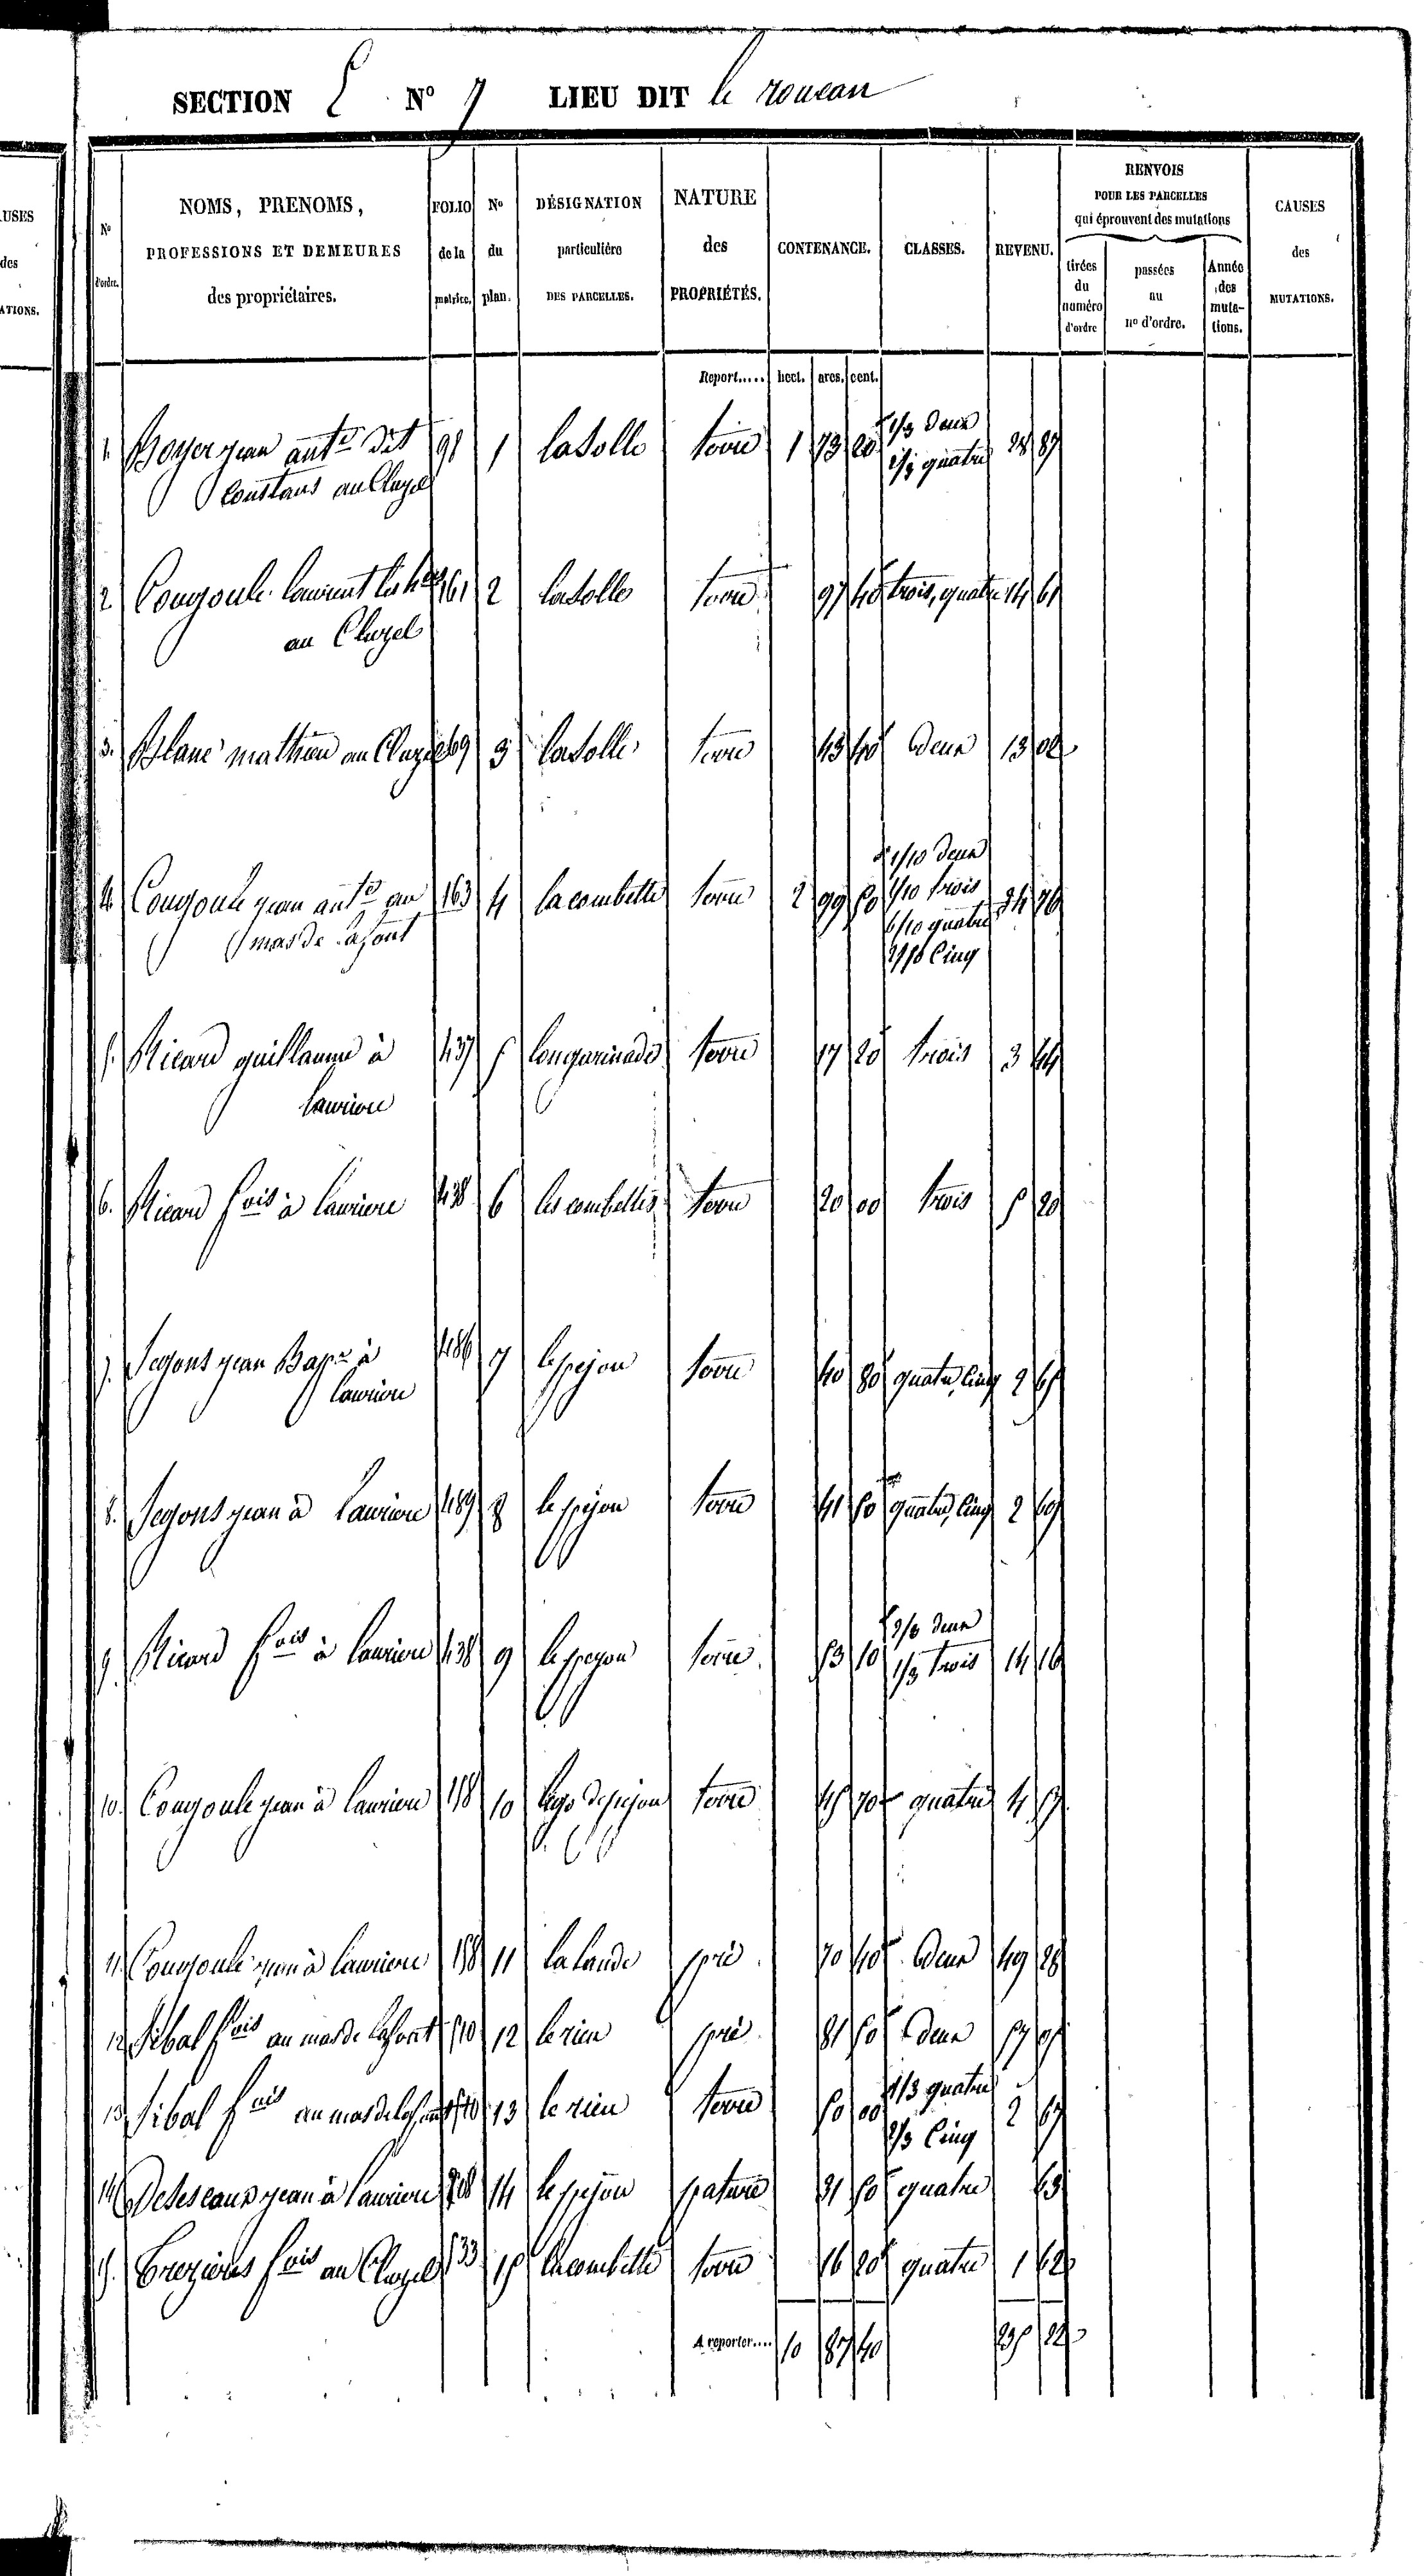 SECTION E N° 7 LIEU DIT le roucan
USES
des
ATIONS.
N° d'ordre.
NOMS, PRENOMS,
PROFESSIONS ET DEMEURES
des propriétaires.
FOLIO de la matrice.
N° du plan.
DÉSIGNATION
particulière
DES PARCELLES.
NATURE
des
PROPRIÉTÉS.
CONTENANCE.
CLASSES.
REVENU.
RENVOIS
POUR LES PARCELLES
qui éprouvent des mutations
tirées du numéro d'ordre
passées au n° d'ordre.
Année des muta-tions.
CAUSES
des
MUTATIONS.
Report..... hect. ares. cent.
1. Boyer jean ant.e dit 91 1 lasolle terre 1 73 20 1/3 deux 28 87
Constans au Cluzel 2/3 quatre
2 Cougoule laurent 161 2 lasolle terre 97 40 trois, quatre 14 61
au Cluzel
3. Blanc mathieu au Cluzel 69 3 lasolle terre 43 40 deux 13 02
1/10 deux
4. Cougoule jean ant.e au 163 4 la combette terre 2 99 50 1/10 trois 34 76
mas de lafont 6/10 quatre
2/10 Cinq
5. Ricard guillaume à 437 5 terre 17 20 trois 3 44
lauriere
6. Ricard f.ois à lauriere 438 6 les combettes terre 26 00 trois 5 20
7. Segons jean Bap.te à 486 7 le pejou terre 40 80 quatre, Cinq 2 65
lauriere
8. Segons jean à lauriere 489 8 le pejou terre 41 50 quatre, Cinq 2 69
9. Ricard f.ois à lauriere 438 9 le pejou terre 53 10 2/3 deux 14 16
1/3 trois
10. Cougoule jean à lauriere 158 10 terre 45 70 quatre 4 57
11. Cougoule jean à lauriere 158 11 la lande pré 70 40 deux 49 28
12. Sibal f.ois au mas de lafont 510 12 le rieu pré 81 50 deux 57 05
13. Sibal f.ois au mas de lafont 510 13 le rieu terre 50 00 1/3 quatre 2 67
2/3 Cinq
14. jean à lauriere 14 le pejou pature 31 50 quatre 63
15. f.ois au Cluzel 533 15 la combette terre 16 20 quatre 1 62
A reporter.... 10 87 40 235 22